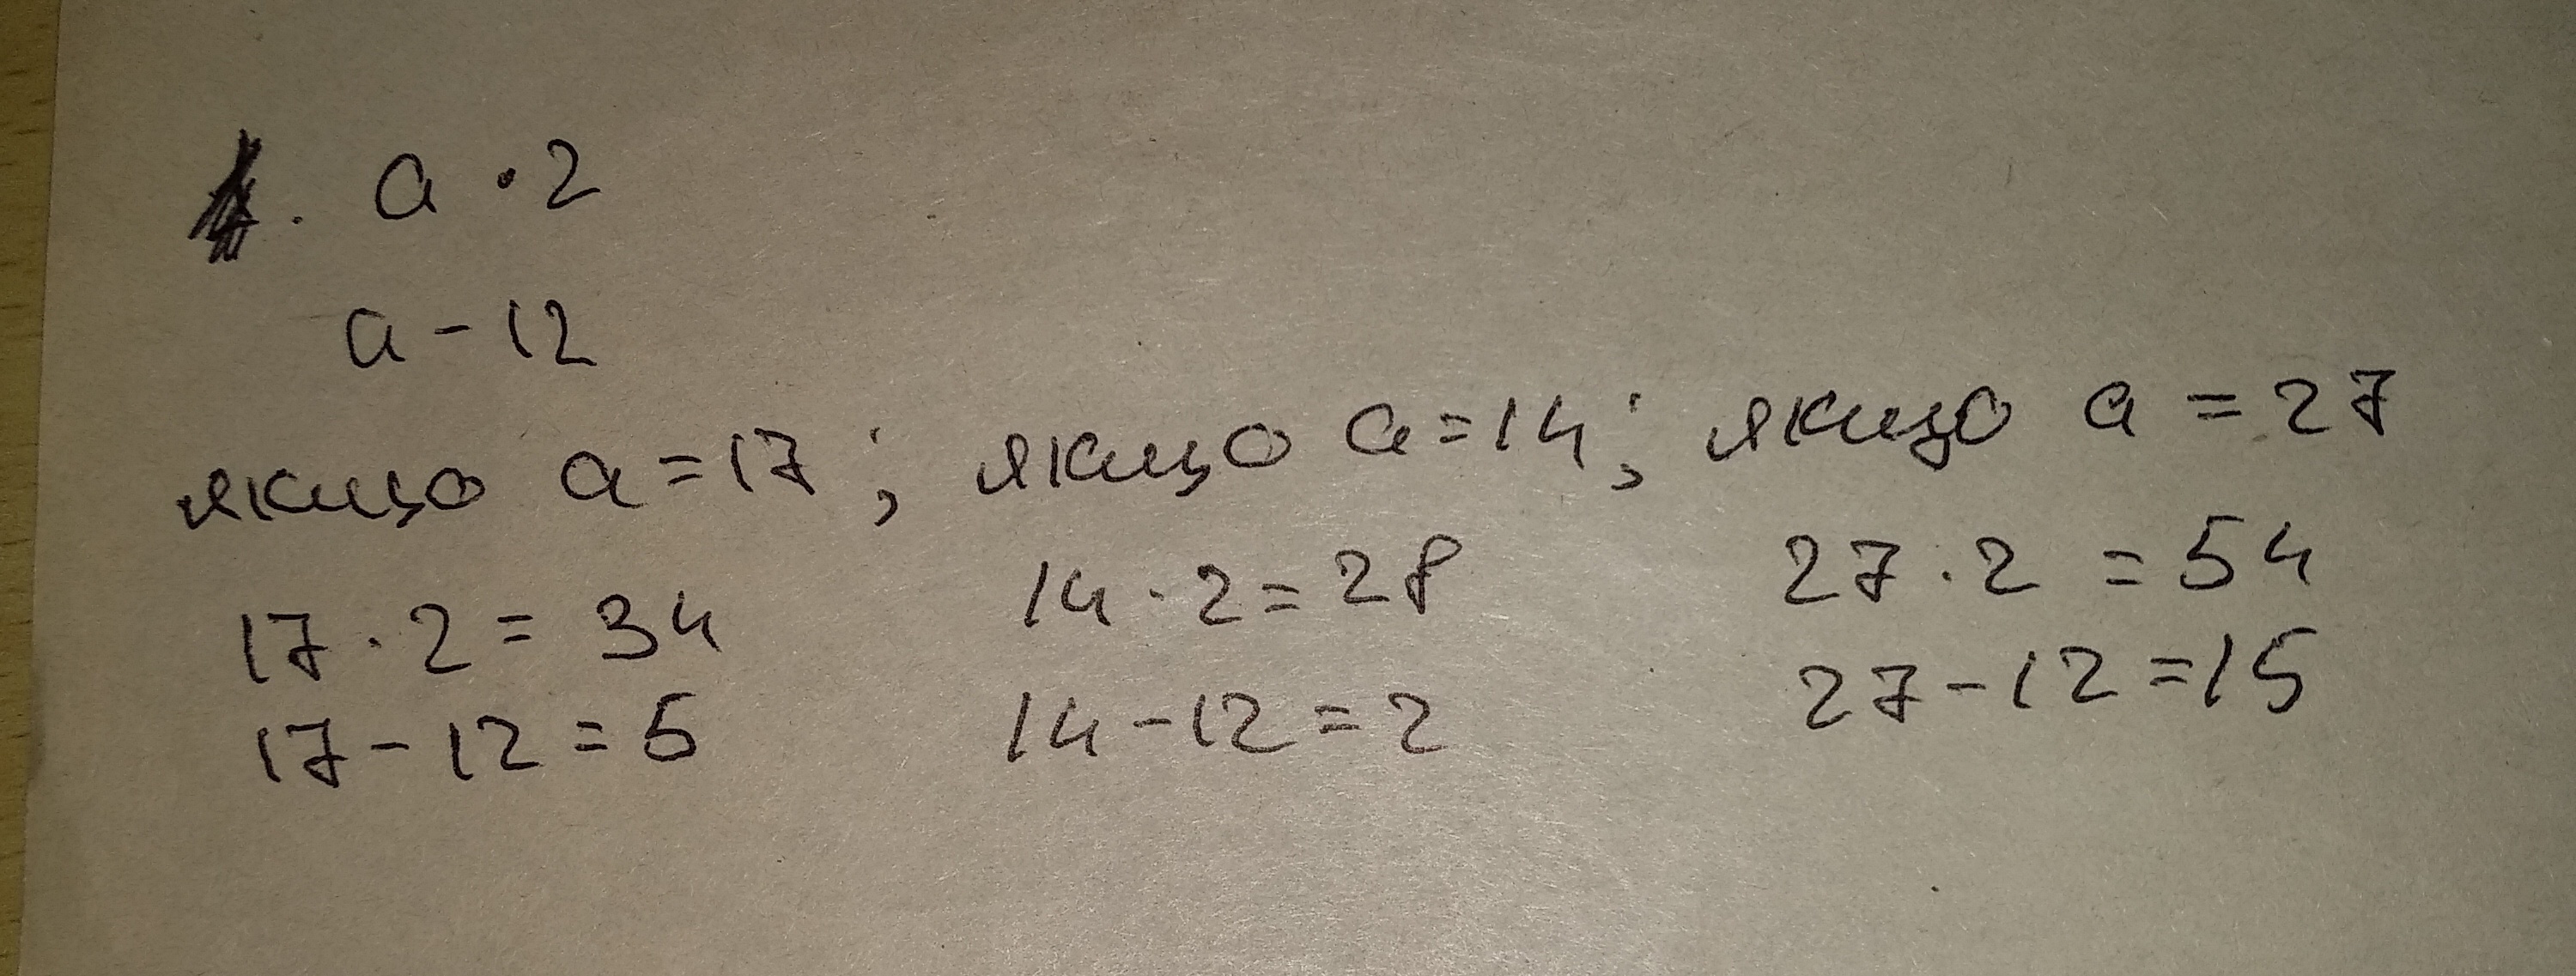 a · 2
a - 12
якщо a = 17 ; якщо a = 14 ; якщо a = 27
17 · 2 = 34 14 · 2 = 28 27 · 2 = 54
17 - 12 = 5 14 - 12 = 2 27 - 12 = 15